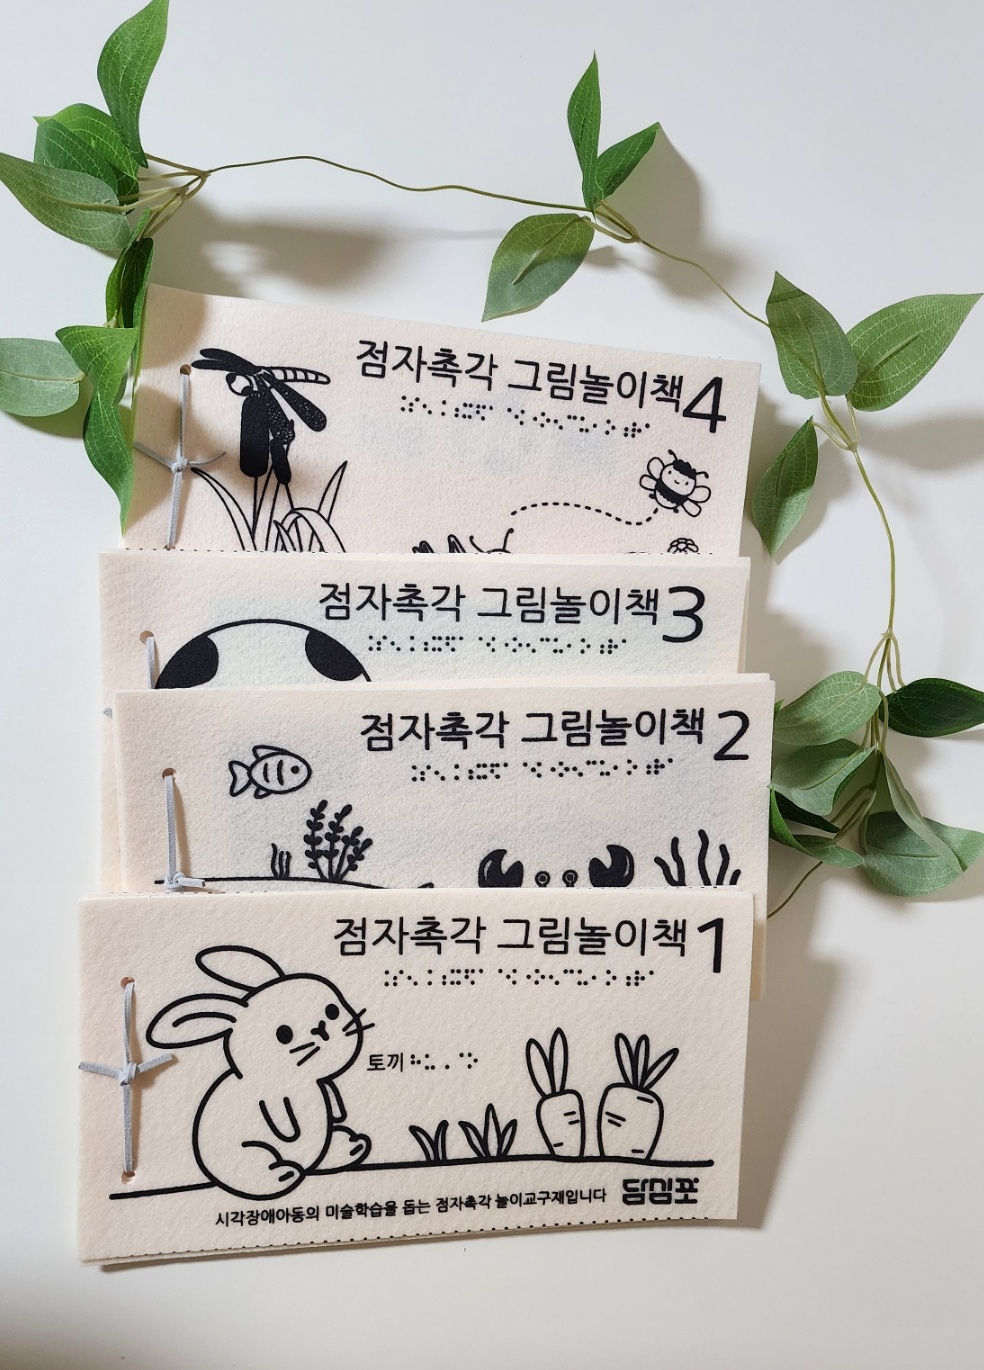 점자촉각 그림놀이책4
점자촉각 그림놀이책3
점자촉각 그림놀이책2
점자촉각 그림놀이책1
토끼
시각장애아동의 미술학습을 돕는 점자촉각 놀이교구재입니다
담심포